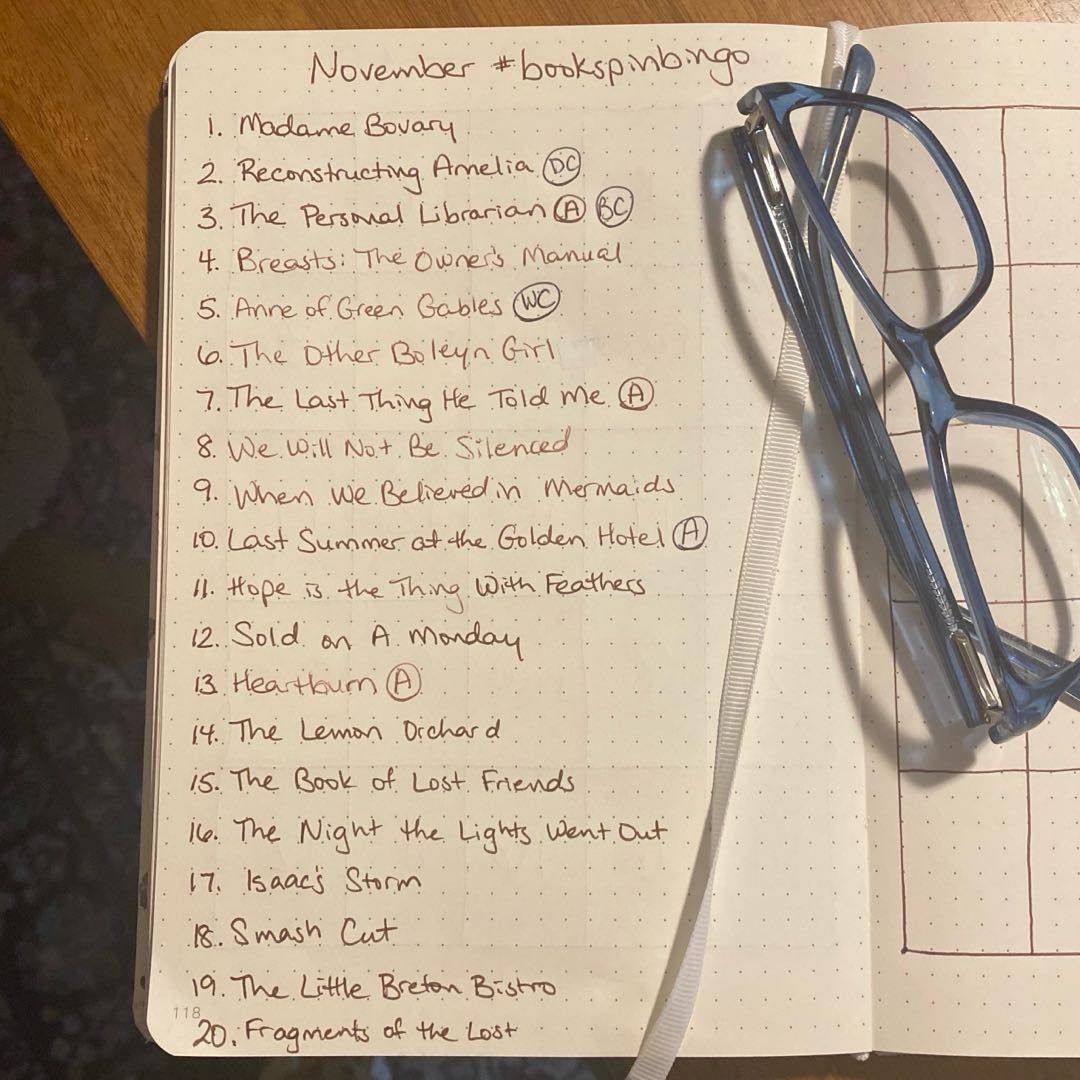 November #bookspinbingo
1. Madame Bovary
2. Reconstructing Amelia DC
3. The Personal Librarian A BC
4. Breasts: The Owner's Manual
5. Anne of Green Gables WC
6. The Other Boleyn Girl
7. The Last Thing He Told Me A
8. We Will Not Be Silenced
9. When We Believed in Mermaids
10. Last Summer at the Golden Hotel A
11. Hope is the Thing With Feathers
12. Sold on A Monday
13 Heartburn A
14. The Lemon Orchard
15. The Book of Lost Friends
16. The Night the Lights Went Out
17. Isaac's Storm
18. Smash Cut
19. The Little Breton Bistro
118
20. Fragments of the Lost